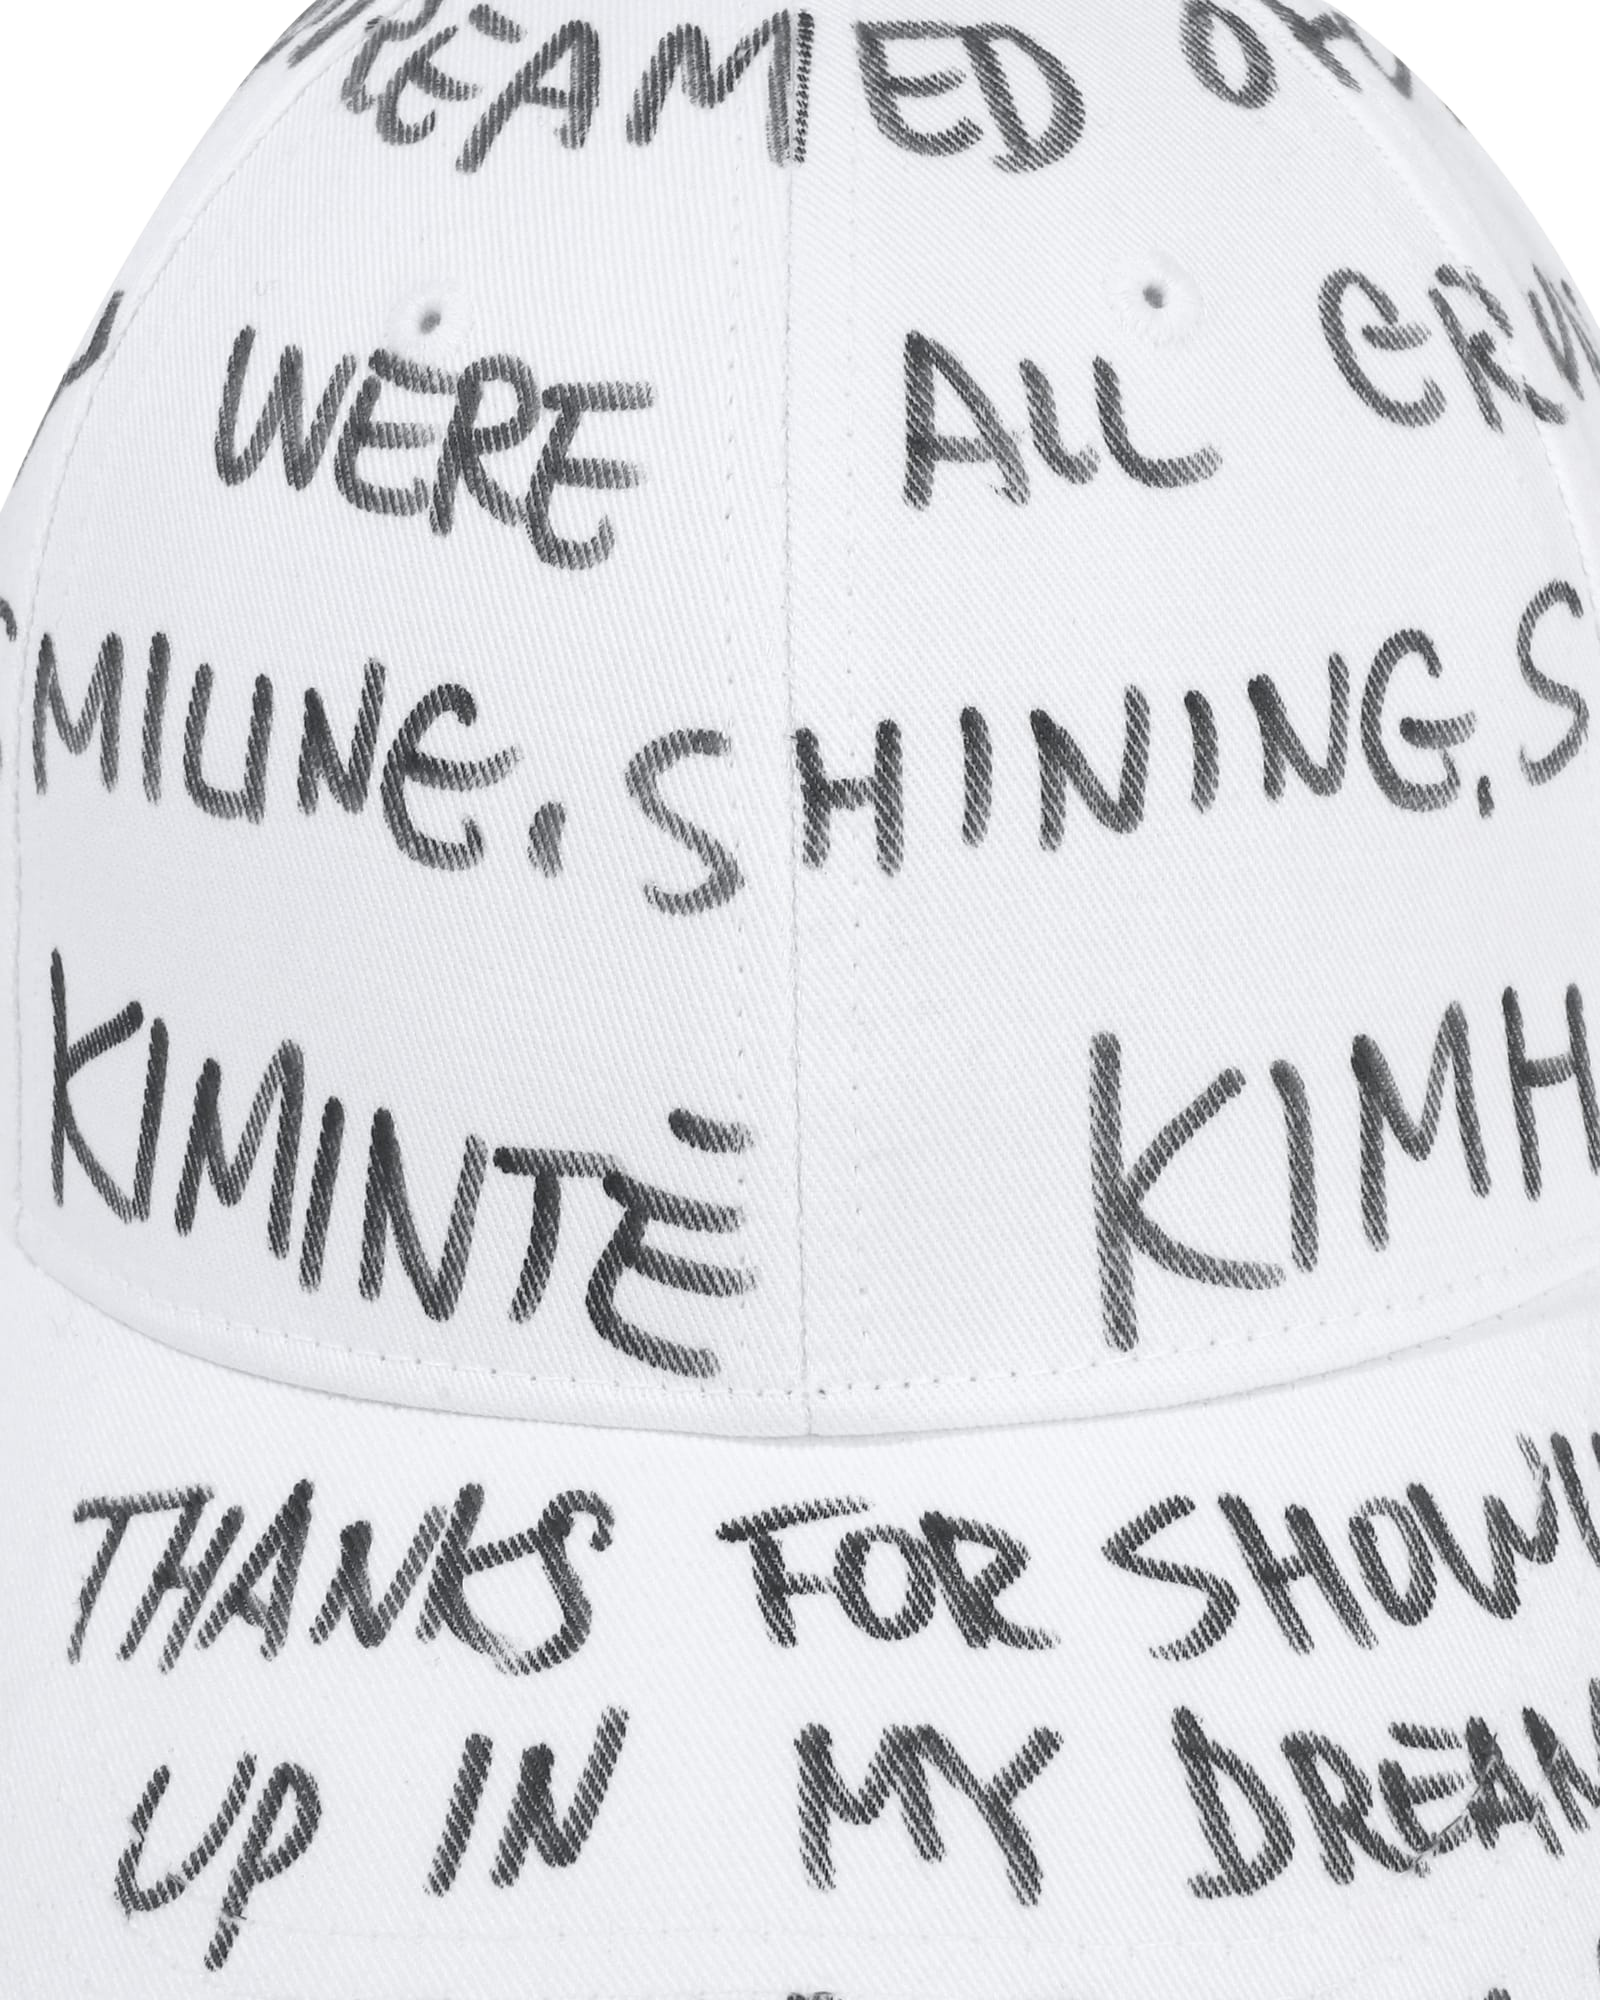 REAMED OH
WERE ALL CR
SMILING. SHINING. S
KIMINTĖ KIMH
THANKS FOR SHOWI
UP IN MY DREAM